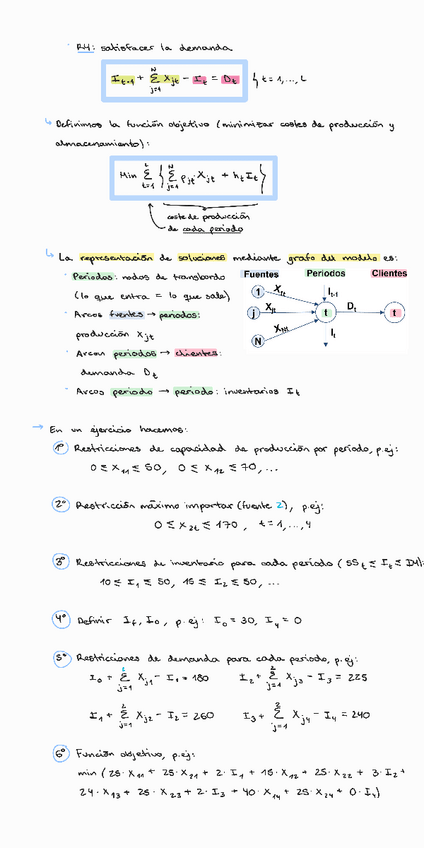 R4: satisfacer la demanda
I_{t-1} + Σ_{j=1}^{N} X_{jt} - I_t = D_t , t = 1, ..., L
Definimos la función objetivo (minimizar costes de producción y
almacenamiento):
Min Σ_{t=1}^{L} { Σ_{j=1}^{N} p_{jt} X_{jt} + h_t I_t }
coste de producción
de cada periodo
La representación de soluciones mediante grafo del modelo es:
Periodos: nodos de transbordo
(lo que entra = lo que sale)
Arcos fuentes → periodos:
producción X_{jt}
Arcos periodos → clientes:
demanda D_t
Arcos periodo → periodo: inventarios I_t
Fuentes Periodos Clientes
1 X_{1t} I_{t-1}
j X_{jt} t D_t t
N X_{Nt} I_t
→ En un ejercicio hacemos:
1º Restricciones de capacidad de producción por periodo, p.ej:
0 ≤ X_{11} ≤ 50, 0 ≤ X_{12} ≤ 70, ...
2º Restricción máximo importar (fuente 2), p.ej:
0 ≤ X_{2t} ≤ 170, t = 1, ..., 4
3º Restricciones de inventario para cada periodo (SS_t ≤ I_t ≤
10 ≤ I_1 ≤ 50, 15 ≤ I_2 ≤ 50, ...
4º Definir I_f, I_0, p.ej: I_0 = 30, I_4 = 0
5º Restricciones de demanda para cada periodo, p.ej:
I_0 + Σ_{j=1}^{2} X_{j1} - I_1 = 180 I_2 + Σ_{j=1}^{2} X_{j3} - I_3 = 225
I_1 + Σ_{j=1}^{2} X_{j2} - I_2 = 260 I_3 + Σ_{j=1}^{2} X_{j4} - I_4 = 240
6º Función objetivo, p.ej:
min (25·X_{11} + 25·X_{21} + 2·I_1 + 15·X_{12} + 25·X_{22} + 3·I_2 +
24·X_{13} + 25·X_{23} + 2·I_3 + 40·X_{14} + 25·X_{24} + 0·I_4)